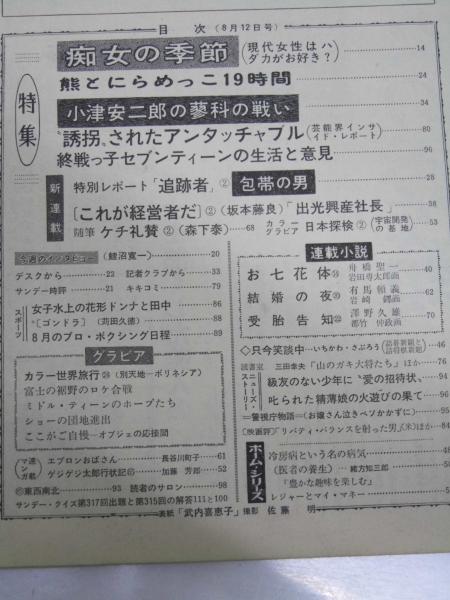 目次(8月12日号)
特集
痴女の季節(現代女性はハダカがお好き?)14
熊とにらめっこ19時間 24
小津安二郎の蓼科の戦い 34
〝誘拐〟されたアンタッチャブル(芸能界インサイド・レポート)80
終戦っ子セブンティーンの生活と意見 96
新連載
特別レポート「追跡者」② 包帯の男 28
〔これが経営者だ〕②(坂本藤良)「出光興産社長」38
随筆 ケチ礼賛②(森下泰)68
カラーグラビア 日本探検②(宇宙開発の基地)53
今週のインタビュー(鯉沼寛一)20
デスクから 22
記者クラブから 33
サンデー時評 21
キキコミ 79
スポーツ
女子水上の花形ドンナと田中 86
〝〔ゴンドラ〕(苅田久徳)88
8月のプロ・ボクシング日程 89
グラビア
カラー世界旅行㉘(別天地―ポリネシア)
富士の裾野のロケ合戦
ミドル・ティーンのホープたち
ショーの団地進出
ここがご自慢―オブジェの応接間
マンガ連載
エプロンおばさん 長谷川町子 61
ゲジゲジ太郎行状記 加藤芳郎 52
東西南北 93
読者のサロン 98
サンデー・クイズ第317回出題と第315回の解答111と100
表紙「武内喜恵子」撮影 佐藤 明
連載小説
お七花体 舟橋聖一 岩田専太郎画 40
結婚の夜 有馬頼義 岩崎鐸画 62
受胎告知 澤野久雄 都竹伸政画 70
◇只今笑談中 いちかわ・さぶろう 46
読書室 三田幸夫「山のガキ大将たち」ほか 76
ニューズ・ストーリー
級友のない少年に〝愛の招待状〟 94
叱られた精薄娘の火遊びの果て 96
=警視庁物語=(お嬢さん泣きベソかかずに)
〔映画評〕「リバティ・バランスを射った男」(米)ほか 84
ホーム・シリーズ
冷房病という名の病気
(医者の養生) 緒方知三郎
「豊かな趣味を楽しむ」
レジャーとマイ・マネー